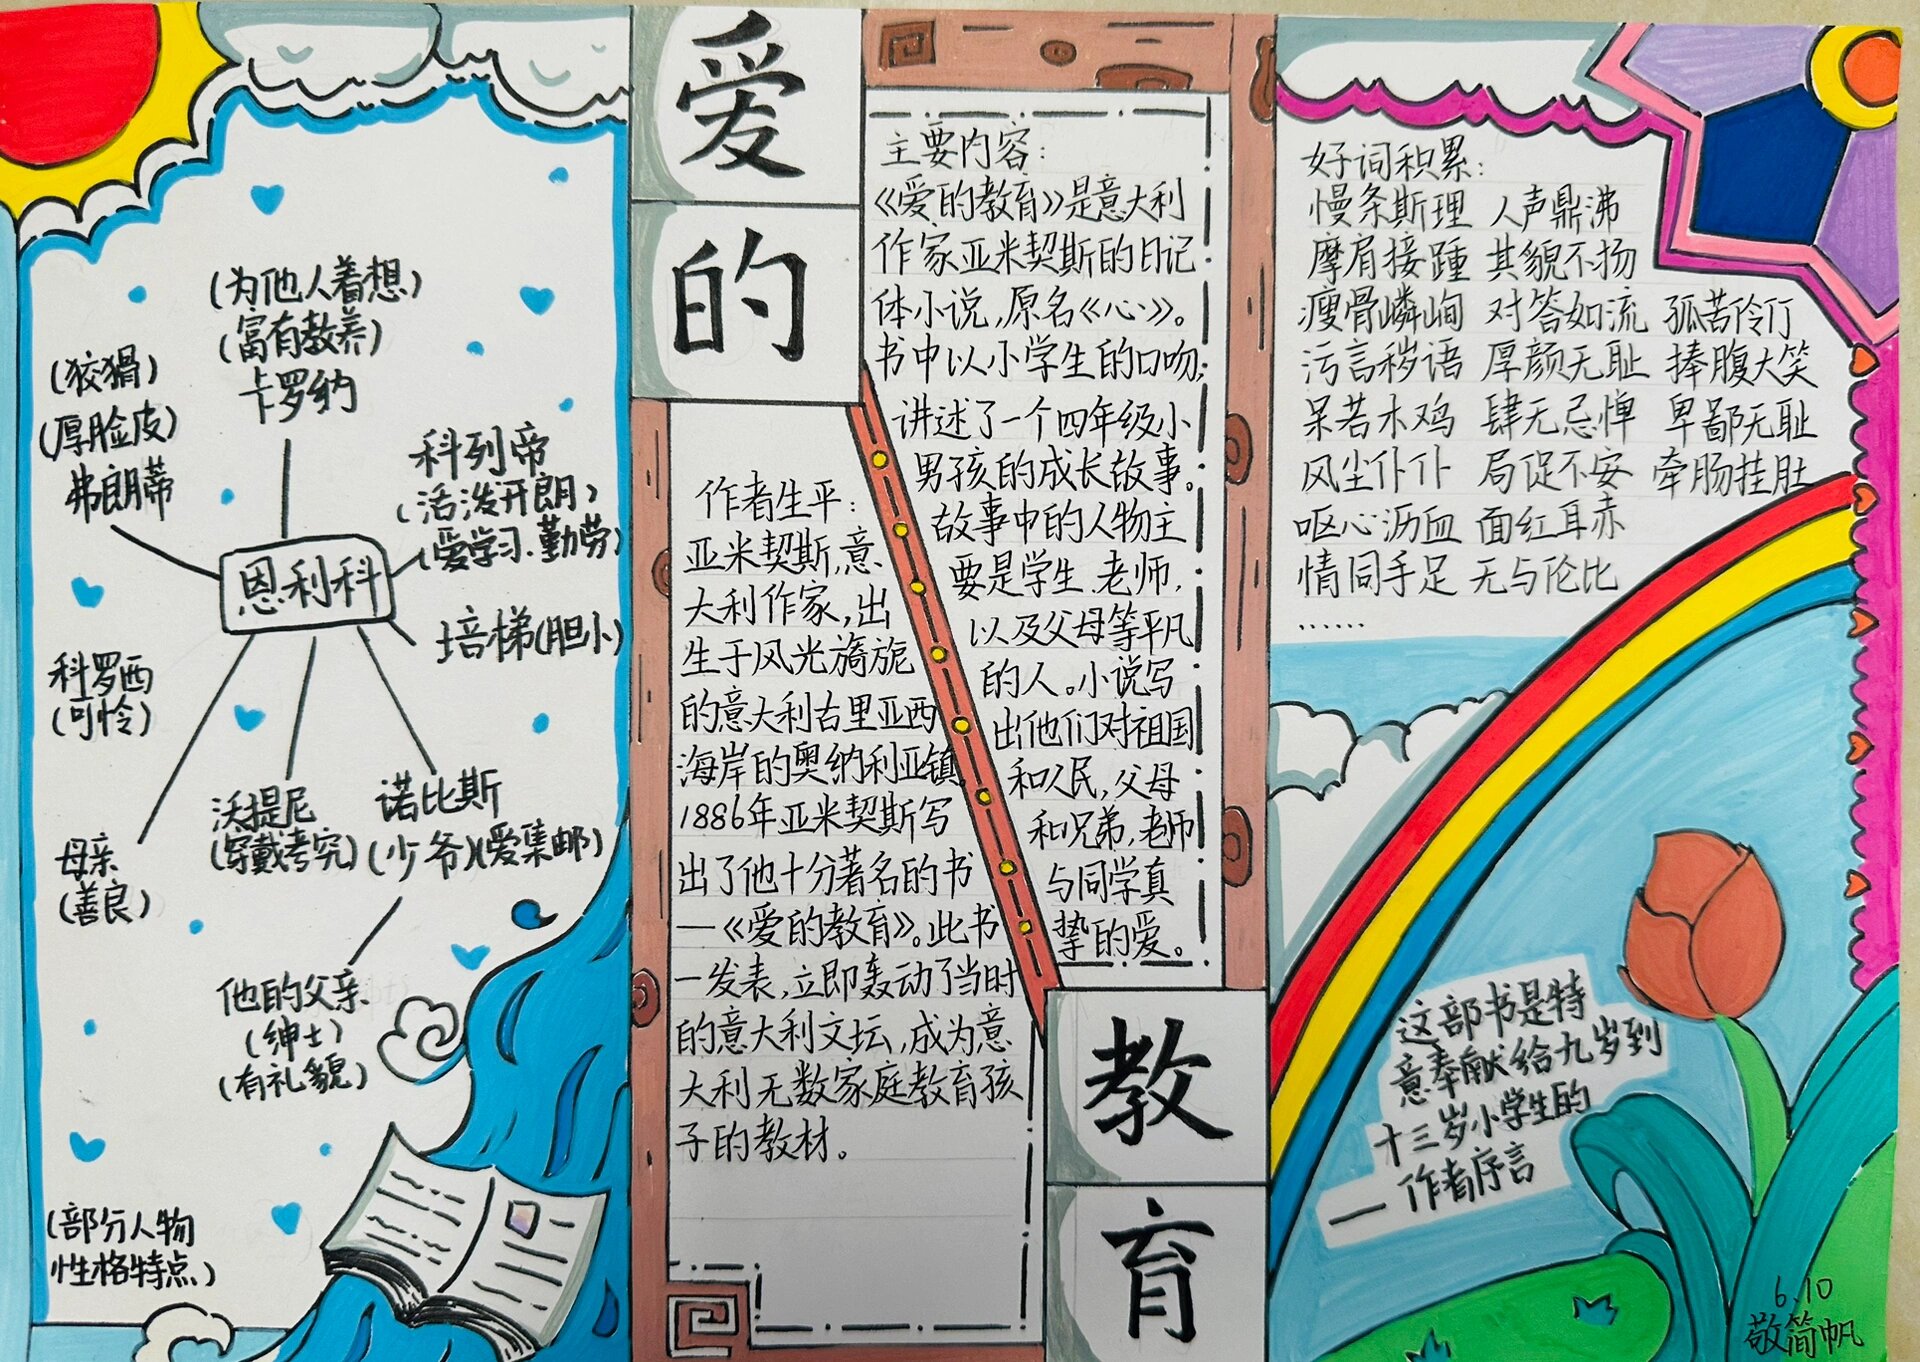 爱的
教育
(为他人着想)
(富有教养)
卡罗纳
(狡猾)
(厚脸皮)
弗朗蒂
科列帝
(活泼开朗)
(爱学习、勤劳)
恩利科
培梯(胆小)
科罗西
(可怜)
母亲
(善良)
沃提尼
(穿戴考究)
诺比斯
(少爷)(爱集邮)
他的父亲
(绅士)
(有礼貌)
(部分人物
性格特点)
作者生平:
亚米契斯,意
大利作家,出
生于风光旖旎
的意大利古里亚西
海岸的奥纳利亚镇。
1886年亚米契斯写
出了他十分著名的书
—《爱的教育》。此书
一发表,立即轰动了当时
的意大利文坛,成为意
大利无数家庭教育孩
子的教材。
主要内容:
《爱的教育》是意大利
作家亚米契斯的日记
体小说,原名《心》。
书中以小学生的口吻,
讲述了一个四年级小
男孩的成长故事。
故事中的人物主
要是学生、老师,
以及父母等平凡
的人。小说写
出他们对祖国
和人民,父母
和兄弟,老师
与同学真
挚的爱。
好词积累:
慢条斯理 人声鼎沸
摩肩接踵 其貌不扬
瘦骨嶙峋 对答如流 孤苦伶仃
污言秽语 厚颜无耻 捧腹大笑
呆若木鸡 肆无忌惮 卑鄙无耻
风尘仆仆 局促不安 牵肠挂肚
呕心沥血 面红耳赤
情同手足 无与伦比
……
这部书是特
意奉献给九岁到
十三岁小学生的
— 作者序言
6.10
敬简帆